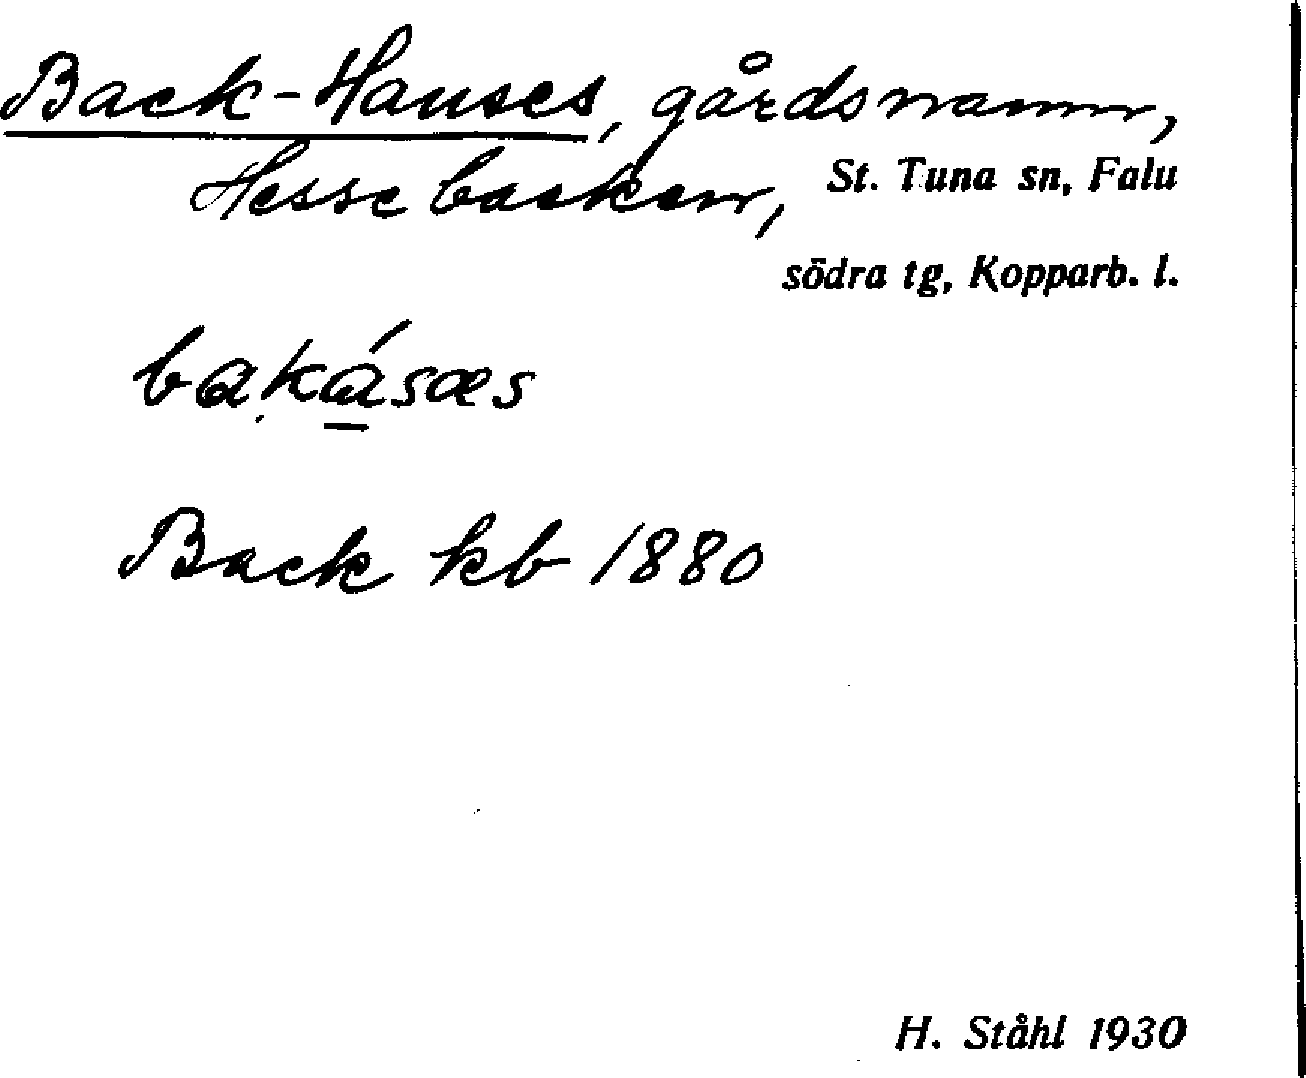 Back-Hanses, gårdsnamn,
Hessebacken, St. Tuna sn, Falu
södra tg, Kopparb. l.
bakásæs
Back kb 1880
H. Ståhl 1930